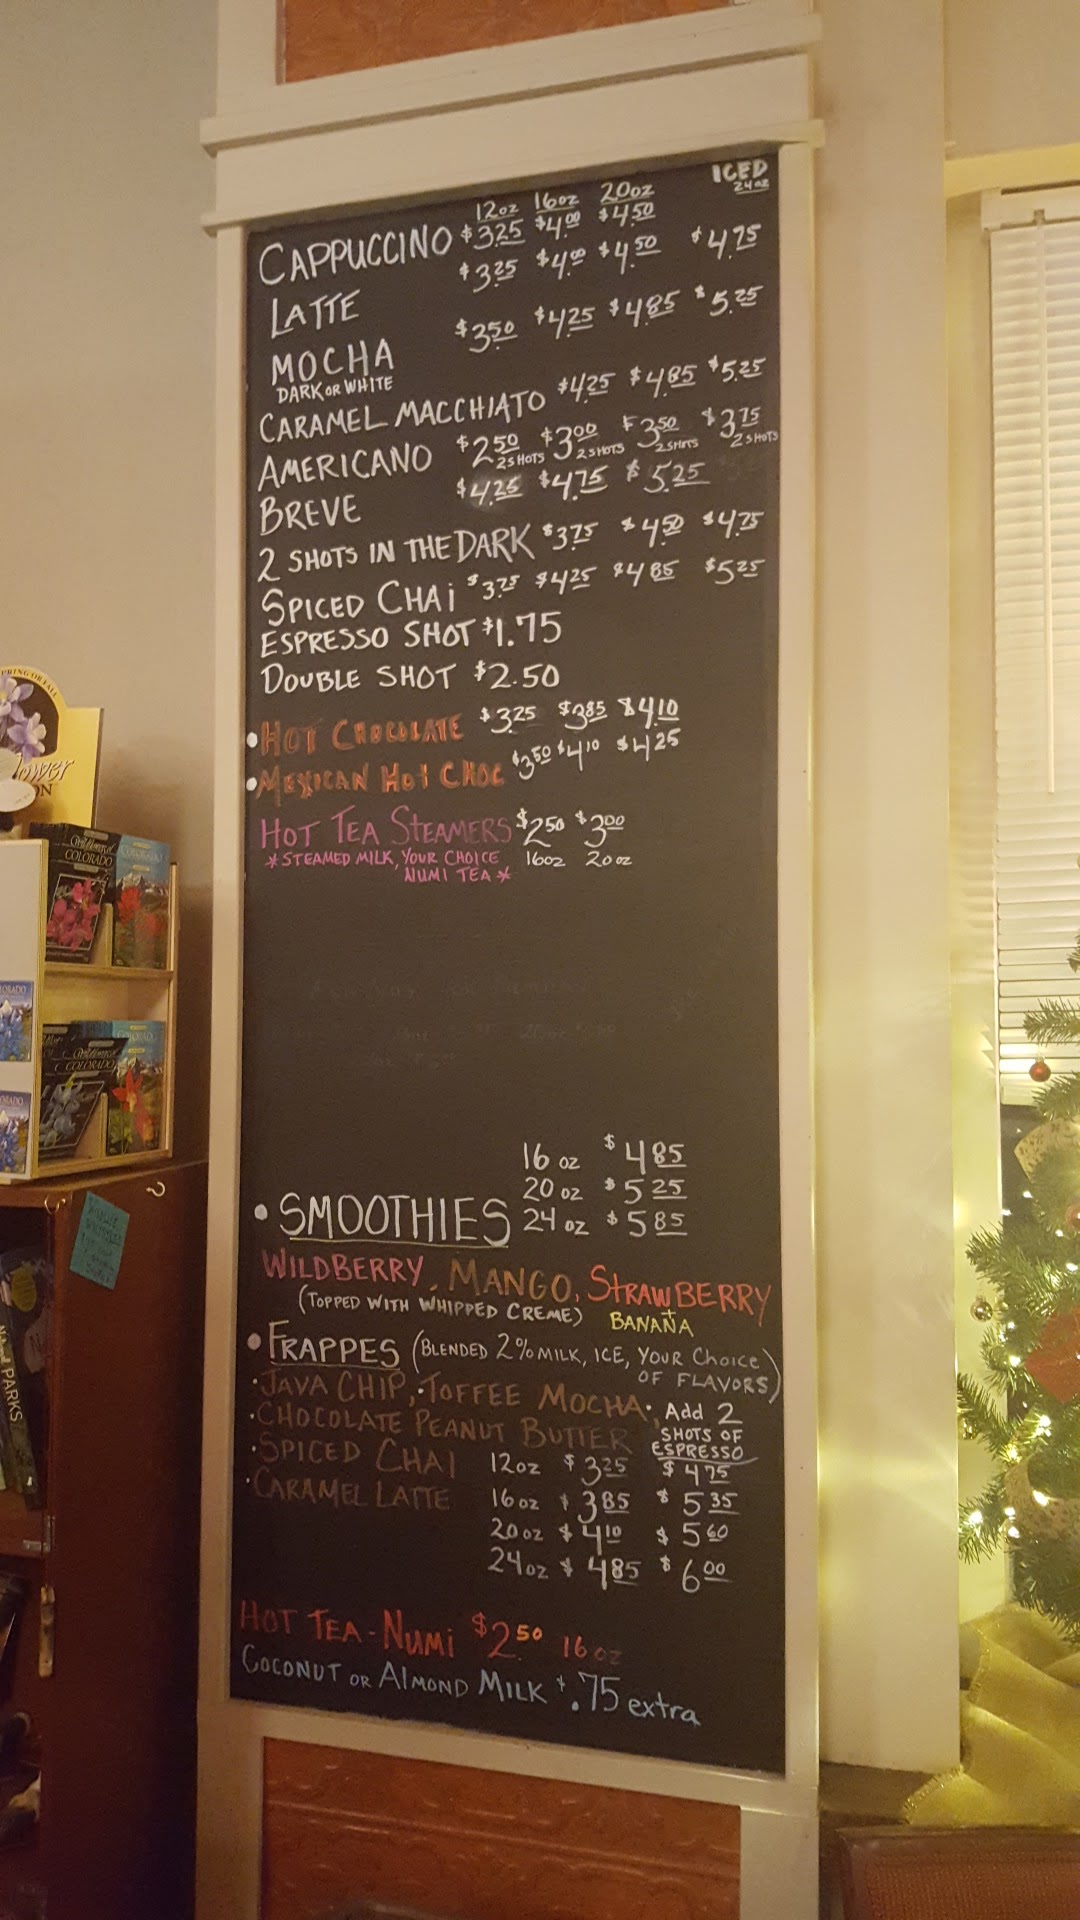 12oz 16oz 20oz ICED 24oz
CAPPUCCINO $3.25 $4.00 $4.50
LATTE $3.25 $4.00 $4.50 $4.75
MOCHA $3.50 $4.25 $4.85 $5.25
DARK OR WHITE
CARAMEL MACCHIATO $4.25 $4.85 $5.25
AMERICANO $2.50 $3.00 $3.50 $3.75
2 SHOTS 2 SHOTS 2 SHOTS 2 SHOTS
BREVE $4.25 $4.75 $5.25
2 SHOTS IN THE DARK $3.75 $4.50 $4.75
SPICED CHAi $3.75 $4.25 $4.85 $5.25
ESPRESSO SHOT $1.75
DOUBLE SHOT $2.50
• HOT CHOCOLATE $3.25 $3.85 $4.10
• MEXICAN HOT CHOC $3.50 $4.10 $4.25
HOT TEA STEAMERS $2.50 $3.00
*STEAMED MILK, YOUR CHOICE 16oz 20oz
NUMI TEA*
16 oz $4.85
20 oz $5.25
• SMOOTHIES 24 oz $5.85
WILDBERRY, MANGO, STRAWBERRY
(TOPPED WITH WHIPPED CREME) + BANANA
• FRAPPES (BLENDED 2% MILK, ICE, YOUR CHOiCE
OF FLAVORS)
• JAVA CHIP, • TOFFEE MOCHA • Add 2
• CHOCOLATE PEANUT BUTTER SHOTS OF
ESPRESSO
• SPICED CHAI 12oz $3.25 $4.75
• CARAMEL LATTE 16oz $3.85 $5.35
20oz $4.10 $5.60
24oz $4.85 $6.00
HOT TEA - NUMi $2.50 16 oz
COCONUT OR ALMOND MILK $.75 extra
SPRING OR FALL
COLORADO
COLORADO
COLORADO
COLORADO
PARKS